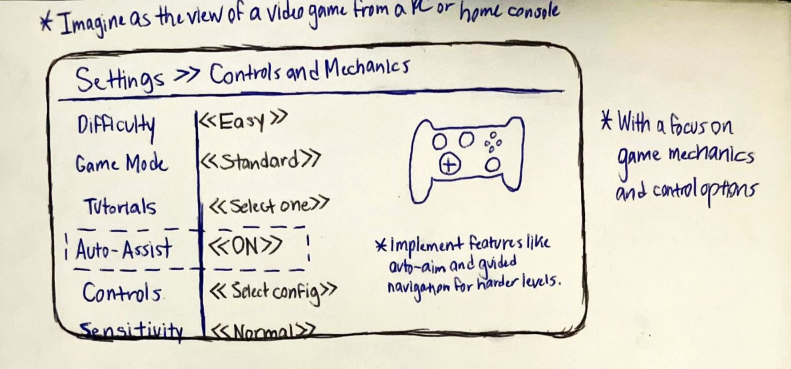 * Imagine as the view of a video game from a PC or home console
Settings >> Controls and Mechanics
Difficulty <<Easy>>
Game Mode <<Standard>>
Tutorials <<Select one>>
Auto-Assist <<ON>>
Controls <<Select config>>
Sensitivity <<Normal>>
* Implement features like
auto-aim and guided
navigation for harder levels.
* With a focus on
game mechanics
and control options